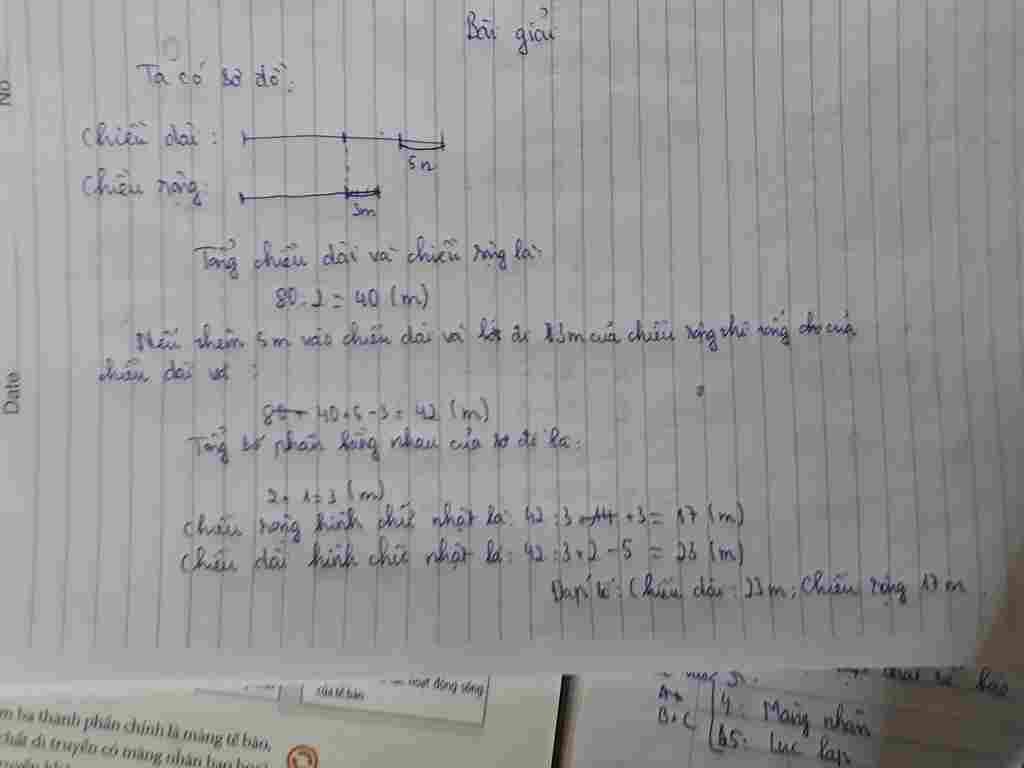 No
Date
Bài giải
Ta có sơ đồ:
Chiều dài:
5m
Chiều rộng:
3m
Tổng chiều dài và chiều rộng là:
80 : 2 = 40 (m)
Nếu thêm 5m vào chiều dài và bớt đi 3m của chiều rộng thì
chiều dài
40 + 5 - 3 = 42 (m)
Tổng số phần bằng nhau của sơ đồ là:
2 + 1 = 3 (m)
Chiều rộng hình chữ nhật là: 42 : 3 + 3 = 17 (m)
Chiều dài hình chữ nhật là: 42 : 3 × 2 - 5 = 23 (m)
Đáp số: Chiều dài: 23m; Chiều rộng 17m
hoạt động sống
của tế bào
m ba thành phần chính là màng tế bào,
chất di truyền có màng nhân bao bọc
A+
B+C
4: Màng nhân
5: Lục lạp